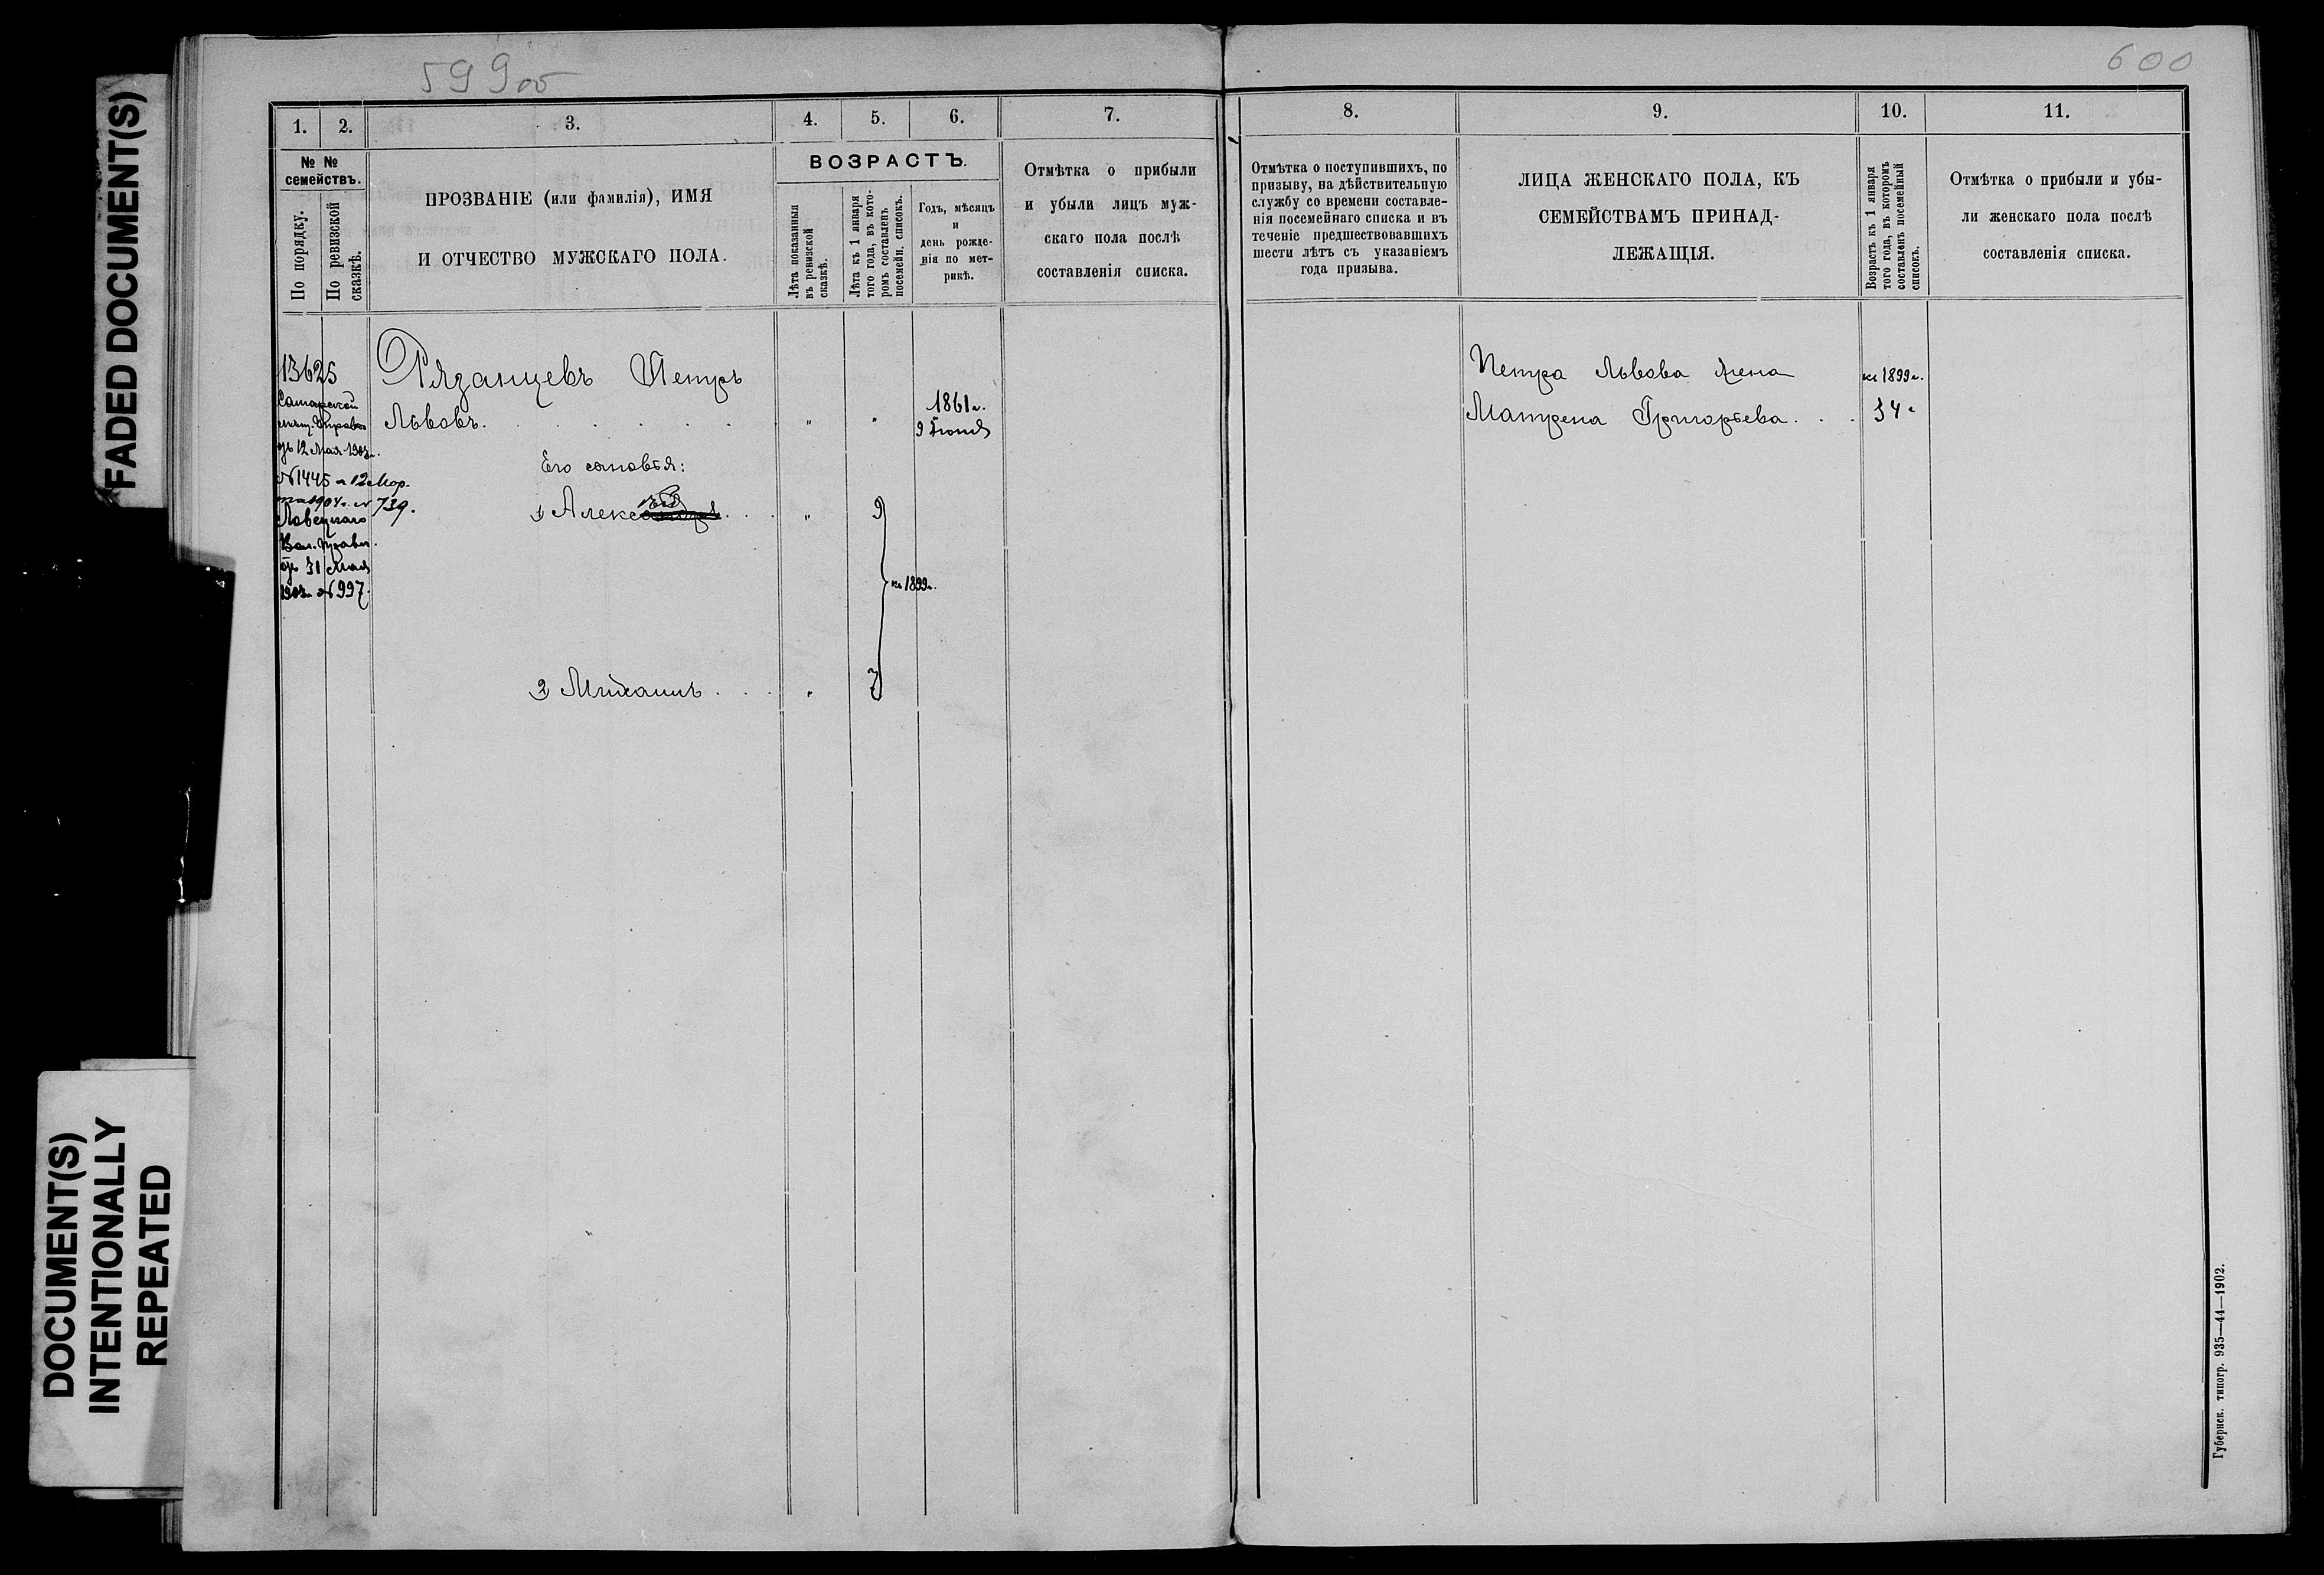 FADED DOCUMENT(S)
DOCUMENT(S)
INTENTIONALLY
REPEATED
599об
1. 2. 3. 4. 5. 6. 7.
№ №
семействъ.
По порядку.
По ревизской
сказкѣ.
ПРОЗВАНІЕ (или фамилія), ИМЯ
И ОТЧЕСТВО МУЖСКАГО ПОЛА.
ВОЗРАСТЪ.
Лѣта показанныя
въ ревизской
сказкѣ.
Лѣта къ 1 января
того года, въ кото-
ромъ составленъ
посемейн. списокъ.
Годъ, мѣсяцъ
и
день рожде-
нія по мет-
рикѣ.
Отмѣтка о прибыли
и убыли лицъ муж-
скаго пола послѣ
составленія списка.
13625
Самарской
мѣщ. Управы
отъ 12 Мая 1903 г.
№ 1445 и 12 Мар-
та 1904 г. № 739.
Вол. Правл.
отъ 31 Мая
1903 г. № 997.
Рязанцевъ Петръ
Львовъ. " " 1861 г.
9 Іюня
Его сыновья:
1 Алексѣй " 9
къ 1899 г.
2 Михаилъ " 3
600
8. 9. 10. 11.
Отмѣтка о поступившихъ, по
призыву, на дѣйствительную
службу со времени составле-
нія посемейнаго списка и въ
теченіе предшествовавшихъ
шести лѣтъ съ указаніемъ
года призыва.
ЛИЦА ЖЕНСКАГО ПОЛА, КЪ
СЕМЕЙСТВАМЪ ПРИНАД-
ЛЕЖАЩІЯ.
Возрастъ къ 1 января
того года, въ которомъ
составленъ посемейный
списокъ.
Отмѣтка о прибыли и убы-
ли женскаго пола послѣ
составленія списка.
Петра Львова жена къ 1899 г.
Матрена Григорьева. 34 г
Губернск. типогр. 935—44—1902.